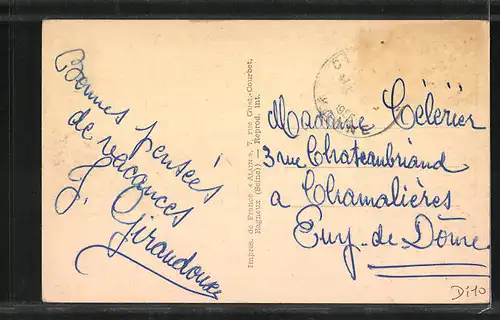 Bonnes pensées
de vacances
J. Giraudoux
Impres. de France « Alsyn », 7, rue Gust.-Courbet,
Bagneux (Seine) — Reprod. Int.
Madame Célérier
3 rue Chateaubriand
à Chamalières
Puy-de-Dôme
Di10